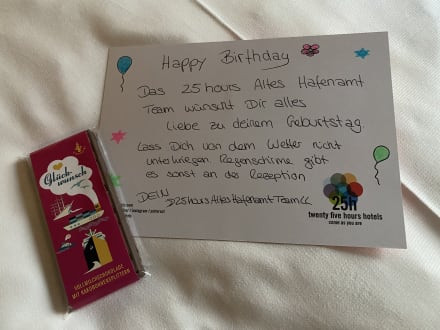 Happy Birthday
Das 25hours Altes Hafenamt
Team wünscht Dir alles
Liebe zu deinem Geburtstag.
Lass Dich von dem Wetter nicht
unterkriegen Regenschirme gibt
es sonst an der Rezeption
DEIN
25hours Altes Hafenamt Team
25h
twenty five hours hotels
come as you are
Glück-
wunsch
VOLLMILCHSCHOKOLADE
MIT KAKAOBOHNENSPLITTERN